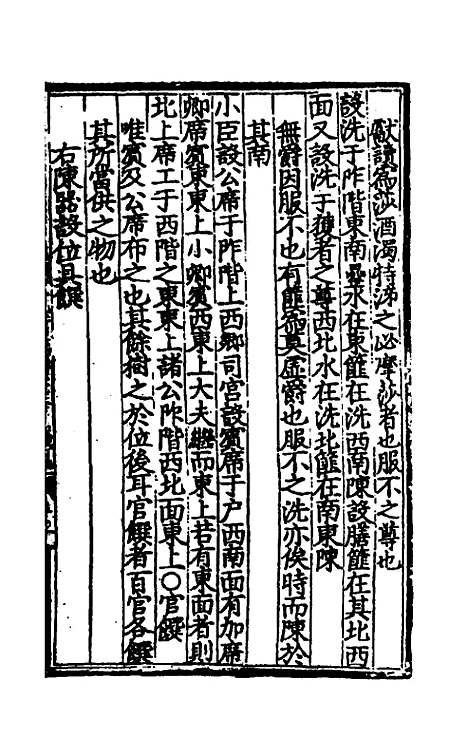 獻讀爲莎酒濁特泲之必摩莎者也服不之尊也
設洗于阼階東南罍水在東篚在洗西南陳設膳篚在其北西
面又設洗于獲者之尊西北水在洗北篚在南東陳
無爵因服不也有篚爲奠虛爵也服不之洗亦俟時而陳於
其南
小臣設公席于阼階上西鄉司宮設賓席于戶西南面有加席
卿席賓東東上小卿賓西東上大夫繼而東上若有東面者則
北上席工于西階之東東上諸公阼階西北面東上〇官饌
唯賓及公席布之也其餘樹之於位後耳官饌者百官各饌
其所當供之物也
右陳器設位具饌